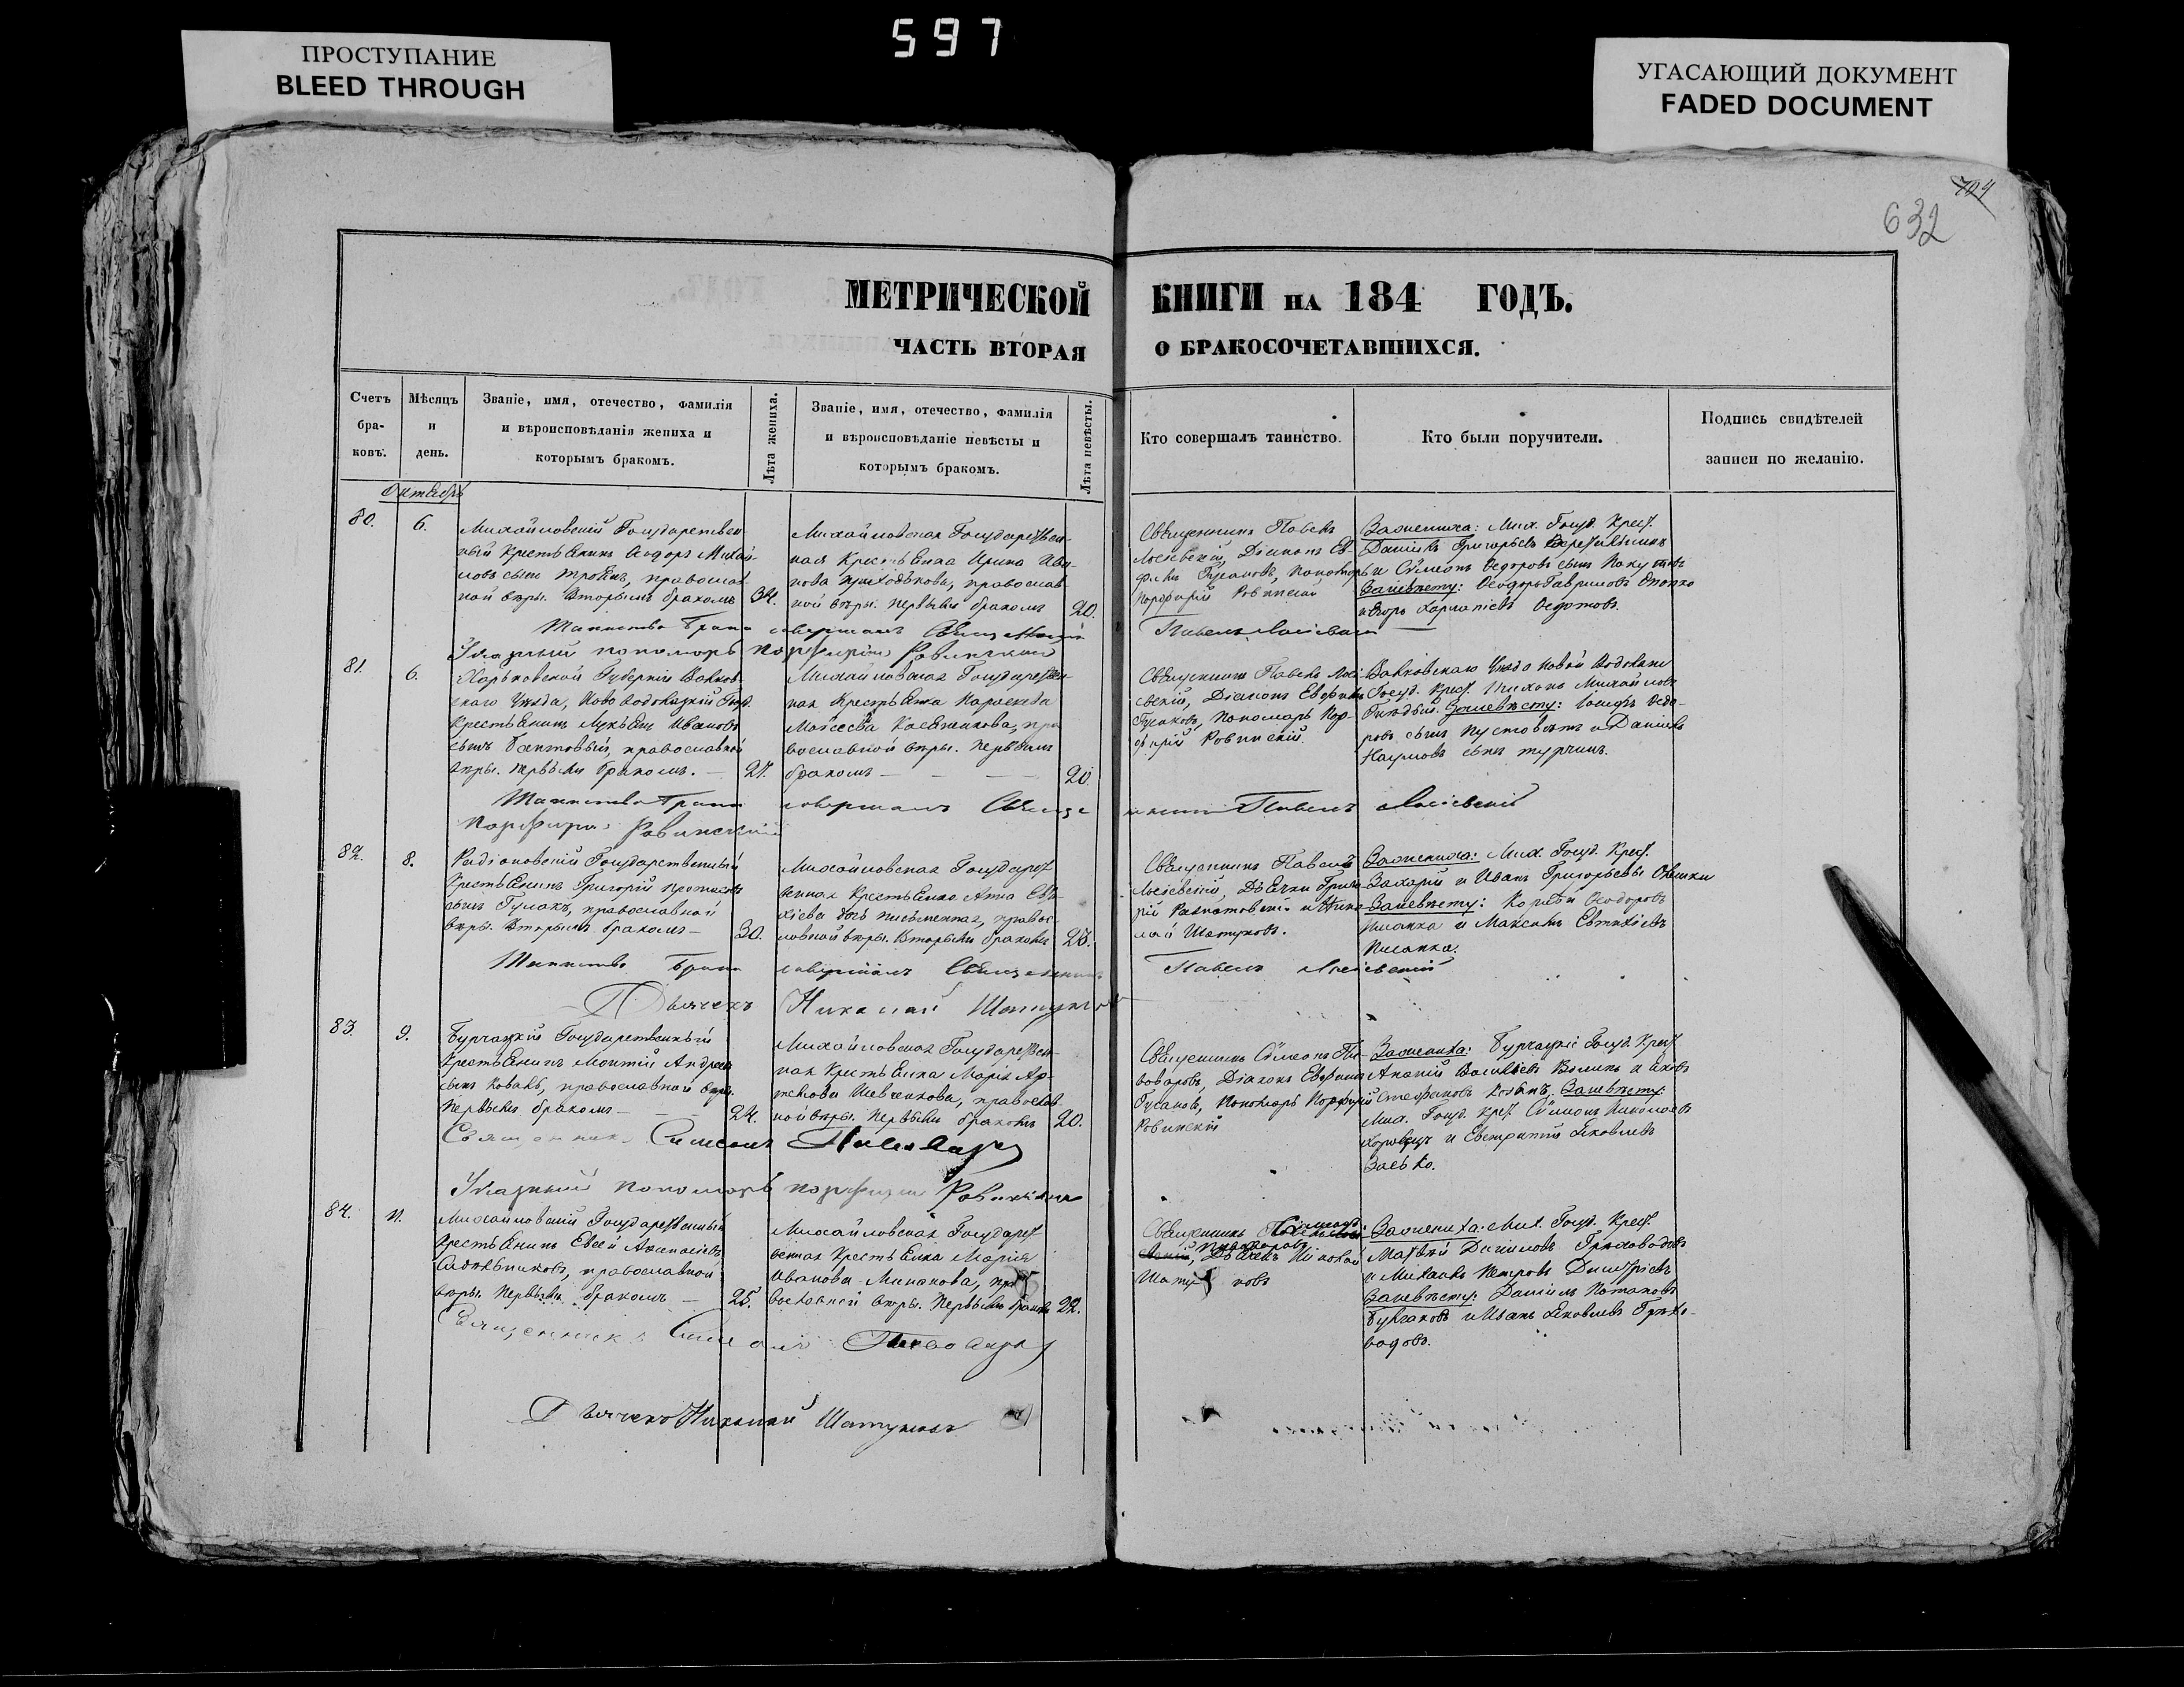 597
ПРОСТУПАНИЕ
BLEED THROUGH
УГАСАЮЩИЙ ДОКУМЕНТ
FADED DOCUMENT
632
МЕТРИЧЕСКОЙ КНИГИ НА 184 ГОДЪ.
ЧАСТЬ ВТОРАЯ О БРАКОСОЧЕТАВШИХСЯ.
Счетъ
бра-
ковъ.
Мѣсяцъ
и
день.
Званіе, имя, отечество, фамилія
и вѣроисповѣданія жениха и
которымъ бракомъ.
Лѣта жениха.
Званіе, имя, отечество, фамилія
и вѣроисповѣданіе невѣсты и
которымъ бракомъ.
Лѣта невѣсты.
Кто совершалъ таинство.
Кто были поручители.
Подпись свидѣтелей
записи по желанію.
Октябрь
80.
6.
Михайловскій Государствен-
ный Крестьянинъ Ѳеодоръ Михай-
ловъ сынъ православ-
ной вѣры. Вторымъ бракомъ
34.
Михайловская Государствен-
ная Крестьянка Ирина Ива-
нова Приходькова, православ-
ной вѣры. Первымъ бракомъ
20.
Священникъ Павелъ
Лосіевскій, Діаконъ Ев-
фимъ Гусаковъ, Пономарь
Порфирій Ровинскій
За жениха: Мих. Госуд. Крест.
Даніилъ Григорьевъ
и Сѵмеонъ Ѳедоровъ сынъ
За невѣсту: Ѳеодоръ Гавриловъ
Таинство Брака совершалъ Священникъ Павелъ Лосіевскій
Указный пономарь Порфирій Ровинскій
81.
6.
Харьковской Губерніи Валков-
скаго Уѣзда, Ново Водолажскій Госуд.
Крестьянинъ Лукьянъ Ивановъ
сынъ православной
вѣры. Первымъ бракомъ. —
27.
Михайловская Государствен-
ная Крестьянка Параскева
Моѵсеева пра
вославной вѣры. Первымъ
бракомъ —
20.
Священникъ Павелъ Лосі-
евскій, Діаконъ Евфимъ
Гусаковъ, Пономарь Пор-
фирій Ровинскій.
Валковскаго Уѣзда Новой Водолаги
Госуд. Крест. Тихонъ Михайловъ
За невѣсту: Іосифъ Ѳедо-
ровъ сынъ Пустовѣтъ и Даніилъ
Наумовъ сынъ Турчинъ.
Таинство Брака совершалъ Священникъ Павелъ Лосіевскій
Порфирій Ровинскій
82.
8.
Радіоновскій Государственный
Крестьянинъ Григорій
сынъ Гулакъ, православной
вѣры. Вторымъ бракомъ —
30.
Михайловская Государст
венная Крестьянка Анна Евти-
хіева дочь православ-
ной вѣры. Вторымъ бракомъ
Священникъ Павелъ
Лосіевскій, Дьячки Григо-
рій и Нико-
лай Шатуновъ.
За жениха: Мих. Госуд. Крест.
Захарій и Иванъ Григорьевы
За невѣсту: Корнѣй Ѳеодоровъ
и Максимъ Евтихіевъ
Таинство Брака совершалъ Священникъ Павелъ Лосіевскій
Дьячекъ Николай Шатуновъ
83.
9.
Бурчацкій Государственный
Крестьянинъ Моктій Андреевъ
сынъ Коваль, православной вѣры.
Первымъ бракомъ —
24.
Михайловская Государствен-
ная Крестьянка Марія Ар-
темова Шевченкова, православ-
ной вѣры. Первымъ бракомъ
20.
Священникъ Сѵмеонъ Пи-
воваровъ, Діаконъ Евфимъ
Гусаковъ, Пономарь Порфирій
Ровинскій
За жениха: Бурчацкіе Госуд. Крест.
Ананій Васильевъ и Яковъ
Стефановъ За невѣсту:
Мих. Госуд. Крест. Сѵмеонъ Николаевъ
и Евстратій Яковлевъ
Священникъ Симеонъ Пивоваръ
Указный пономарь Порфирій Ровинскій
84.
11.
Михайловскій Государственный
Крестьянинъ Евсей Аѳанасіевъ
православной
вѣры. Первымъ бракомъ —
25.
Михайловская Государст
венная Крестьянка Марія
Иванова Минакова, пра
вославной вѣры. Первымъ бракомъ
22.
Священникъ Сѵмеонъ
Пивоваровъ, Дьячекъ Николай
Шатуновъ
За жениха: Мих. Госуд. Крест.
Матвѣй Даниловъ
и Михаилъ Петровъ Дмитріевъ
За невѣсту: Даніилъ Потаповъ
и Иванъ Яковлевъ
Священникъ Симеонъ Пивоваръ
Дьячекъ Николай Шатуновъ